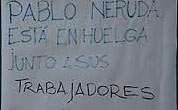 PABLO NERUDA
ESTÁ EN HUELGA
JUNTO A SUS
TRABAJADORES